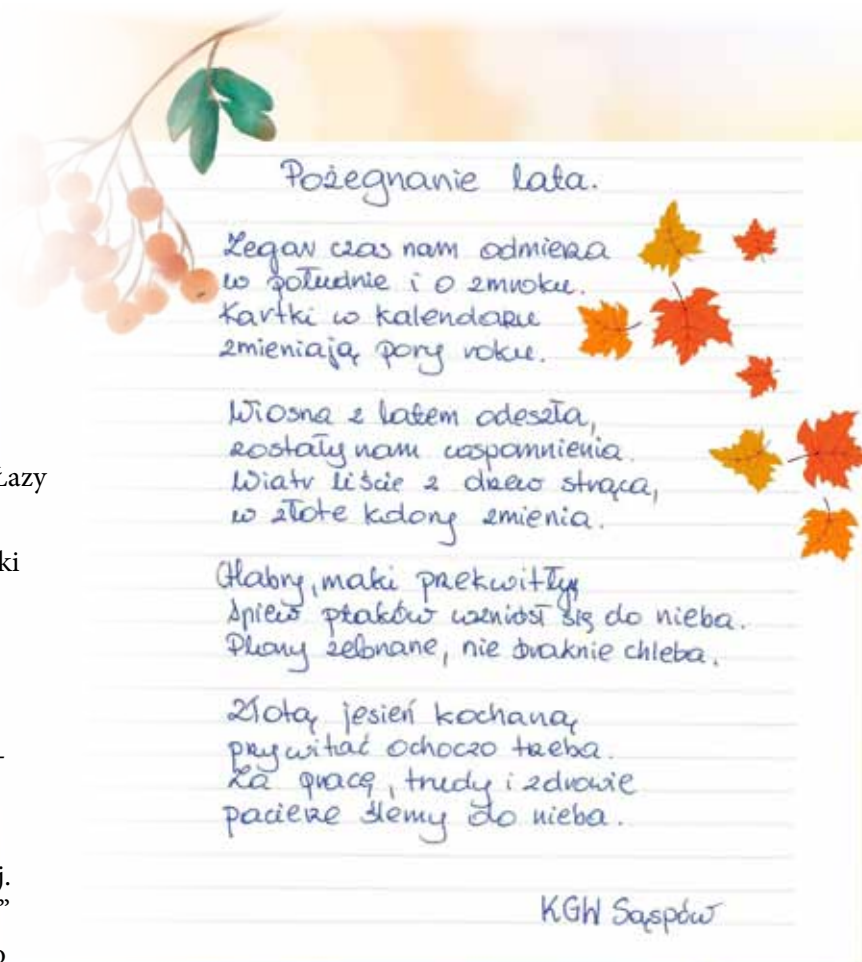 Pożegnanie lata.
Zegar czas nam odmierza
w południe i o zmroku.
Kartki w kalendarzu
zmieniają pory roku.
Wiosna z latem odeszła,
zostały nam wspomnienia.
Wiatr liście z drzew strąca,
w złote kolory zmienia.
Chabry, maki przekwitły
śpiew ptaków wzniósł się do nieba.
Plony zebrane, nie braknie chleba.
Złotą jesień kochaną
przywitać ochoczo trzeba.
Za pracę, trudy i zdrowie
pacierze ślemy do nieba.
KGW Sąspów
Łazy
ki
-
j.
”